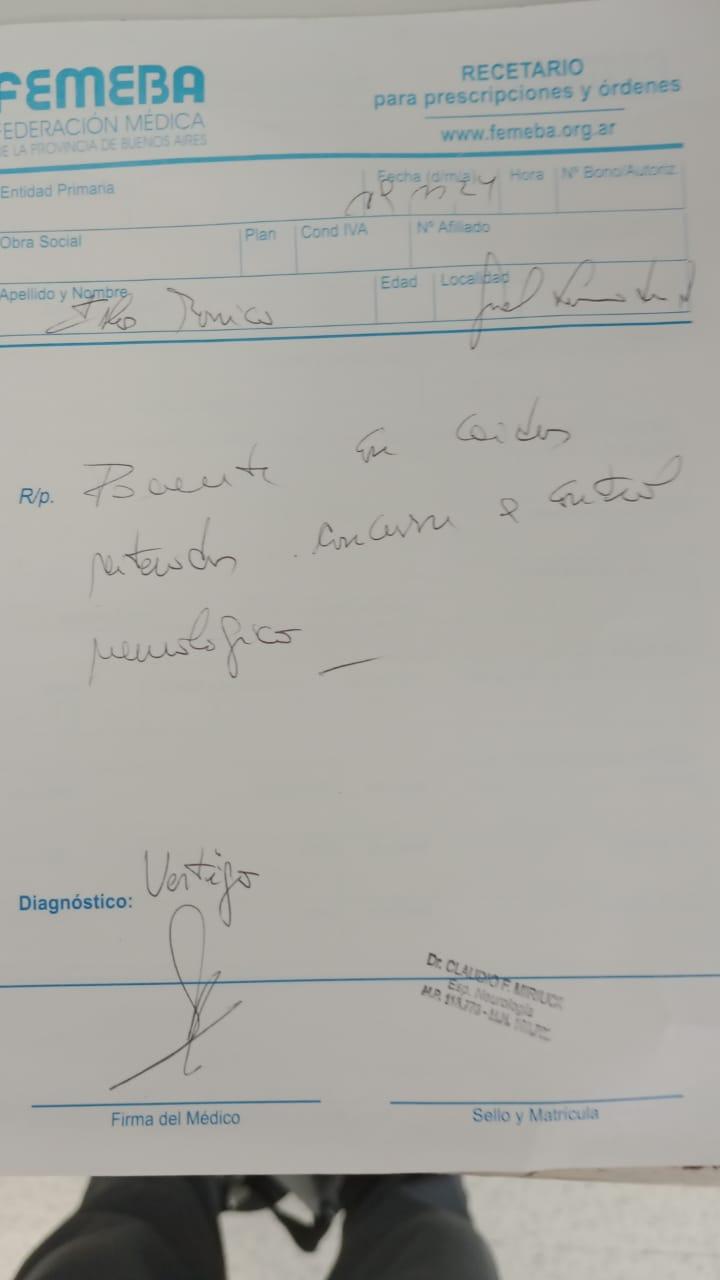 FEMEBA
FEDERACIÓN MÉDICA
DE LA PROVINCIA DE BUENOS AIRES
RECETARIO
para prescripciones y órdenes
www.femeba.org.ar
Entidad Primaria
Fecha (d/m/a)
Hora
Nº Bono/Autoriz.
24
Obra Social
Plan
Cond IVA
Nº Afiliado
Apellido y Nombre
Edad
Localidad
R/p. Paciente con caídas
reiteradas. Concurre a control
neurológico
Diagnóstico: Vertigo
Dr. CLAUDIO F.
Esp. Neurología
Firma del Médico
Sello y Matrícula